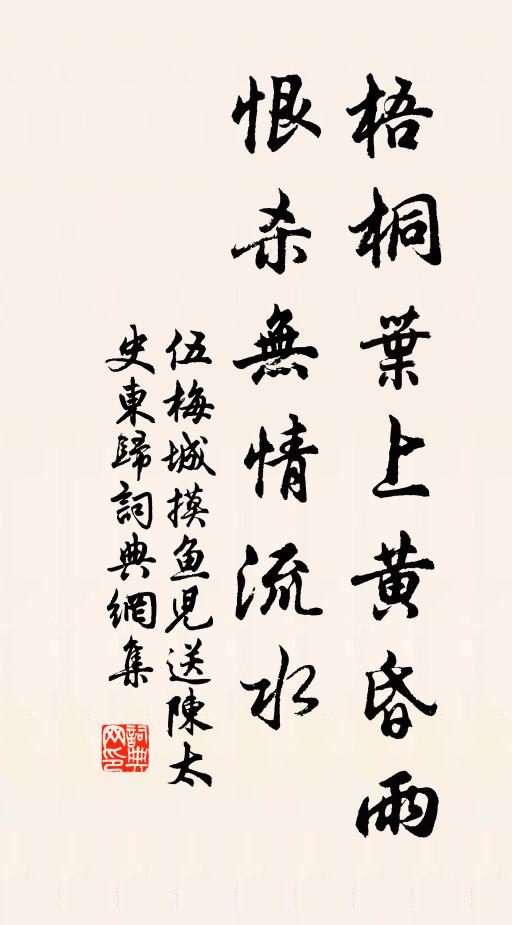 梧桐葉上黃昏雨
恨杀無情流水
伍梅城摸鱼兒送陳太
史東歸詞典網集
詞典
网印